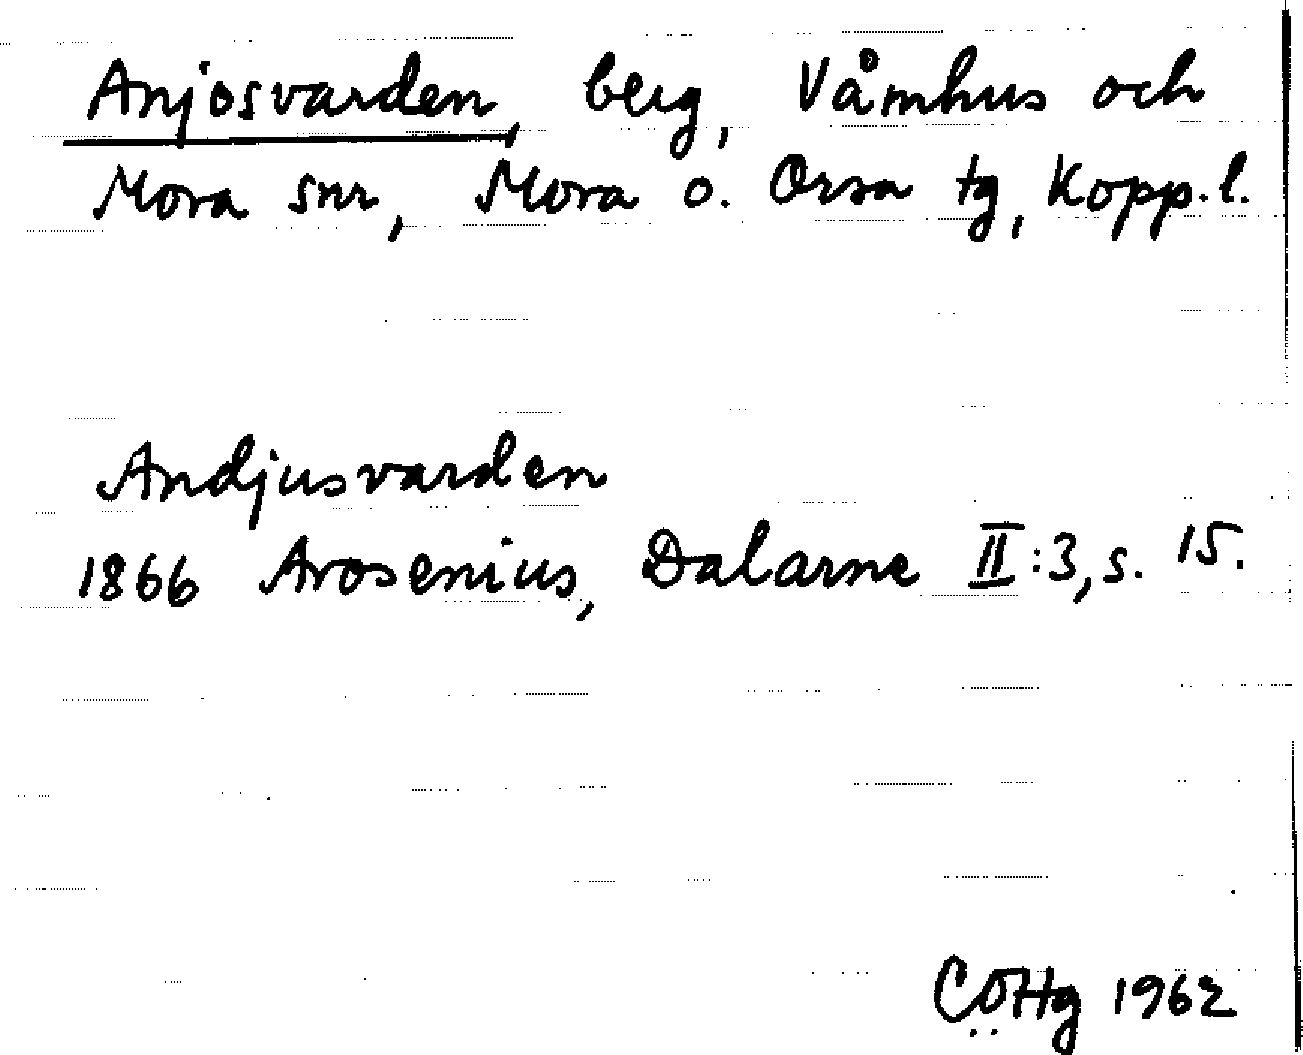 Anjosvarden, berg, Våmhus och
Mora snr, Mora o. Orsa tg, Kopp. l.
Andjusvarden
1866 Arosenius, Dalarne II:3, s. 15.
CÖHg 1962